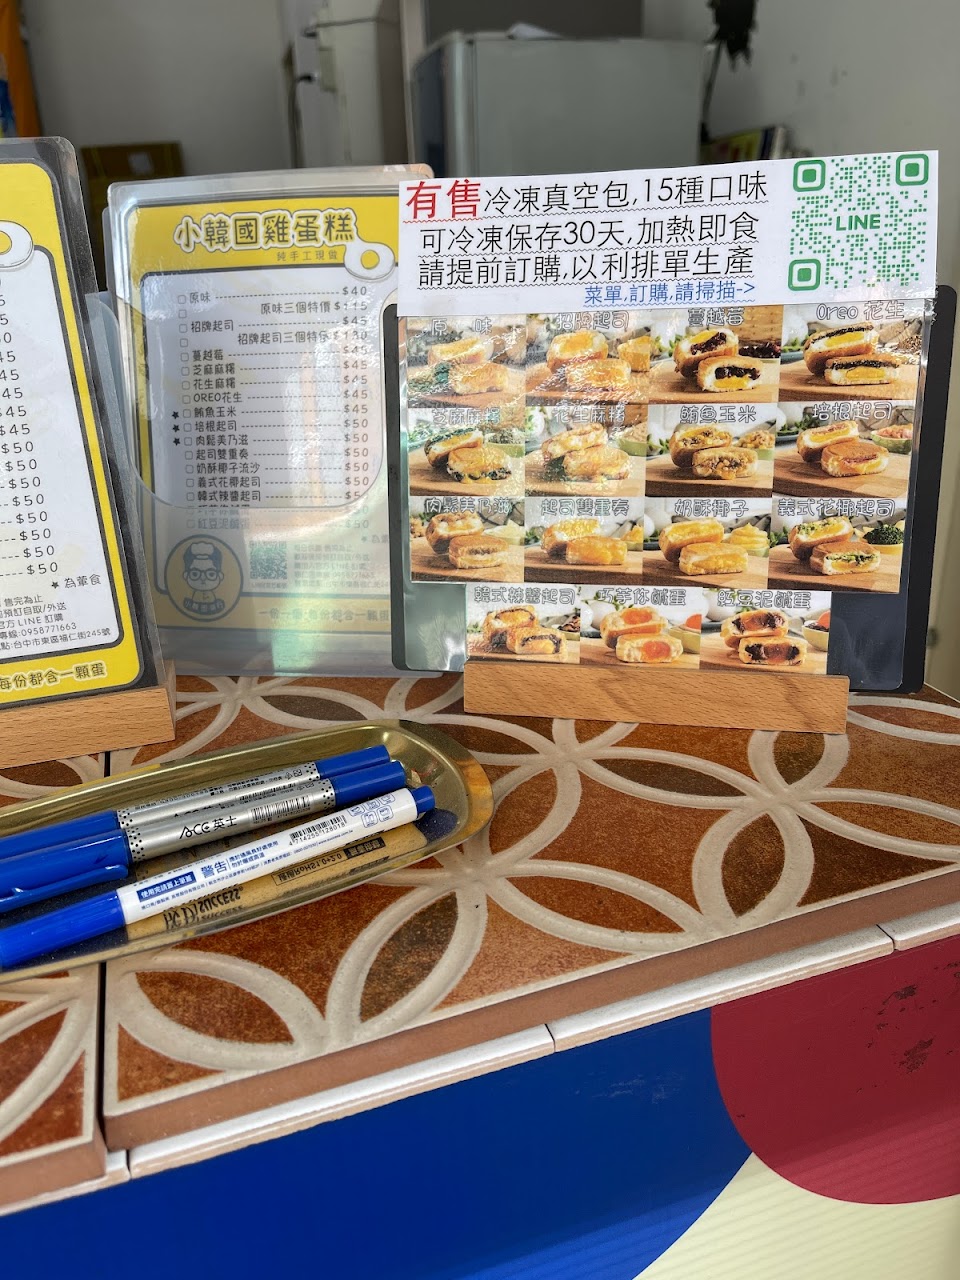 有售冷凍真空包,15種口味
可冷凍保存30天,加熱即食
請提前訂購,以利排單生產
菜單,訂購,請掃描->
LINE
原 味
招牌起司
蔓越莓
Oreo 花生
芝麻麻糬
花生麻糬
鮪魚玉米
培根起司
肉鬆美乃滋
起司雙重奏
奶酥椰子
義式花椰起司
韓式辣醬起司
巧芋你鹹蛋
紅豆泥鹹蛋
小韓國雞蛋糕
純手工現做
原味 $40
原味三個特價 $115
招牌起司 $45
招牌起司三個特價
蔓越莓 $45
芝麻麻糬 $45
花生麻糬 $45
OREO花生 $45
★ 鮪魚玉米 $45
★ 培根起司 $50
★ 肉鬆美乃滋 $50
起司雙重奏 $50
奶酥椰子流沙 $50
義式花椰起司 $50
韓式辣醬起司 $50
紅豆泥鹹蛋 $50
45
45
45
45
$45
$50
$50
$50
$50
$50
$50
$50
★ 為葷食
售完為止
預訂自取/外送
官方 LINE 訂購
專線:0958771663
點:台中市東區福仁街245號
每份都含一顆蛋
ACE 英士
4714255128018
警告
使用完請蓋上筆蓋
SUCCESS